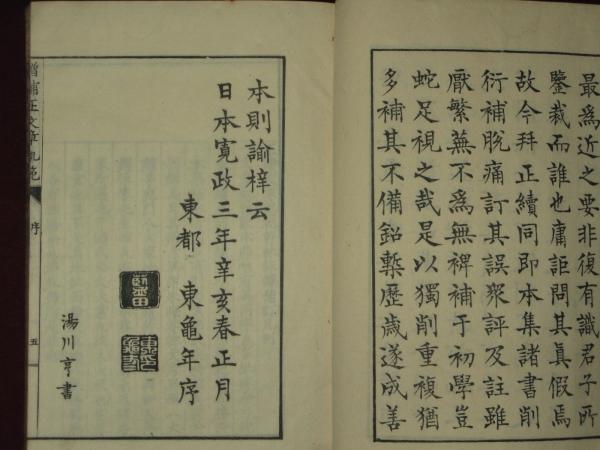 最爲近之要非復有識君子所
鑒裁而誰也庸詎問其眞假焉
故今拜正續同即本集諸書削
衍補脱痛訂其誤衆評及註雖
厭繁蕪不爲無裨補于初學豈
蛇足視之哉是以獨削重複猶
多補其不備鉛槧歷歲遂成善
本則諭梓云
日本寛政三年辛亥春正月
東都 東龜年序
湯川亨書
増補正文章軌範
序
五